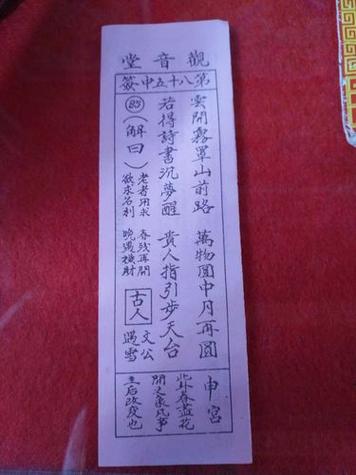 觀音堂
第八十五中簽
雲開霧罩山前路 萬物圓中月再圓
若得詩書沉夢醒 貴人指引步天台
85
(解曰)
老者用求 春残再開
欲求名利 晚遇機財
古人
文公
遇雪
申宮
此卦春盡花
開之象凡事
主后改変也